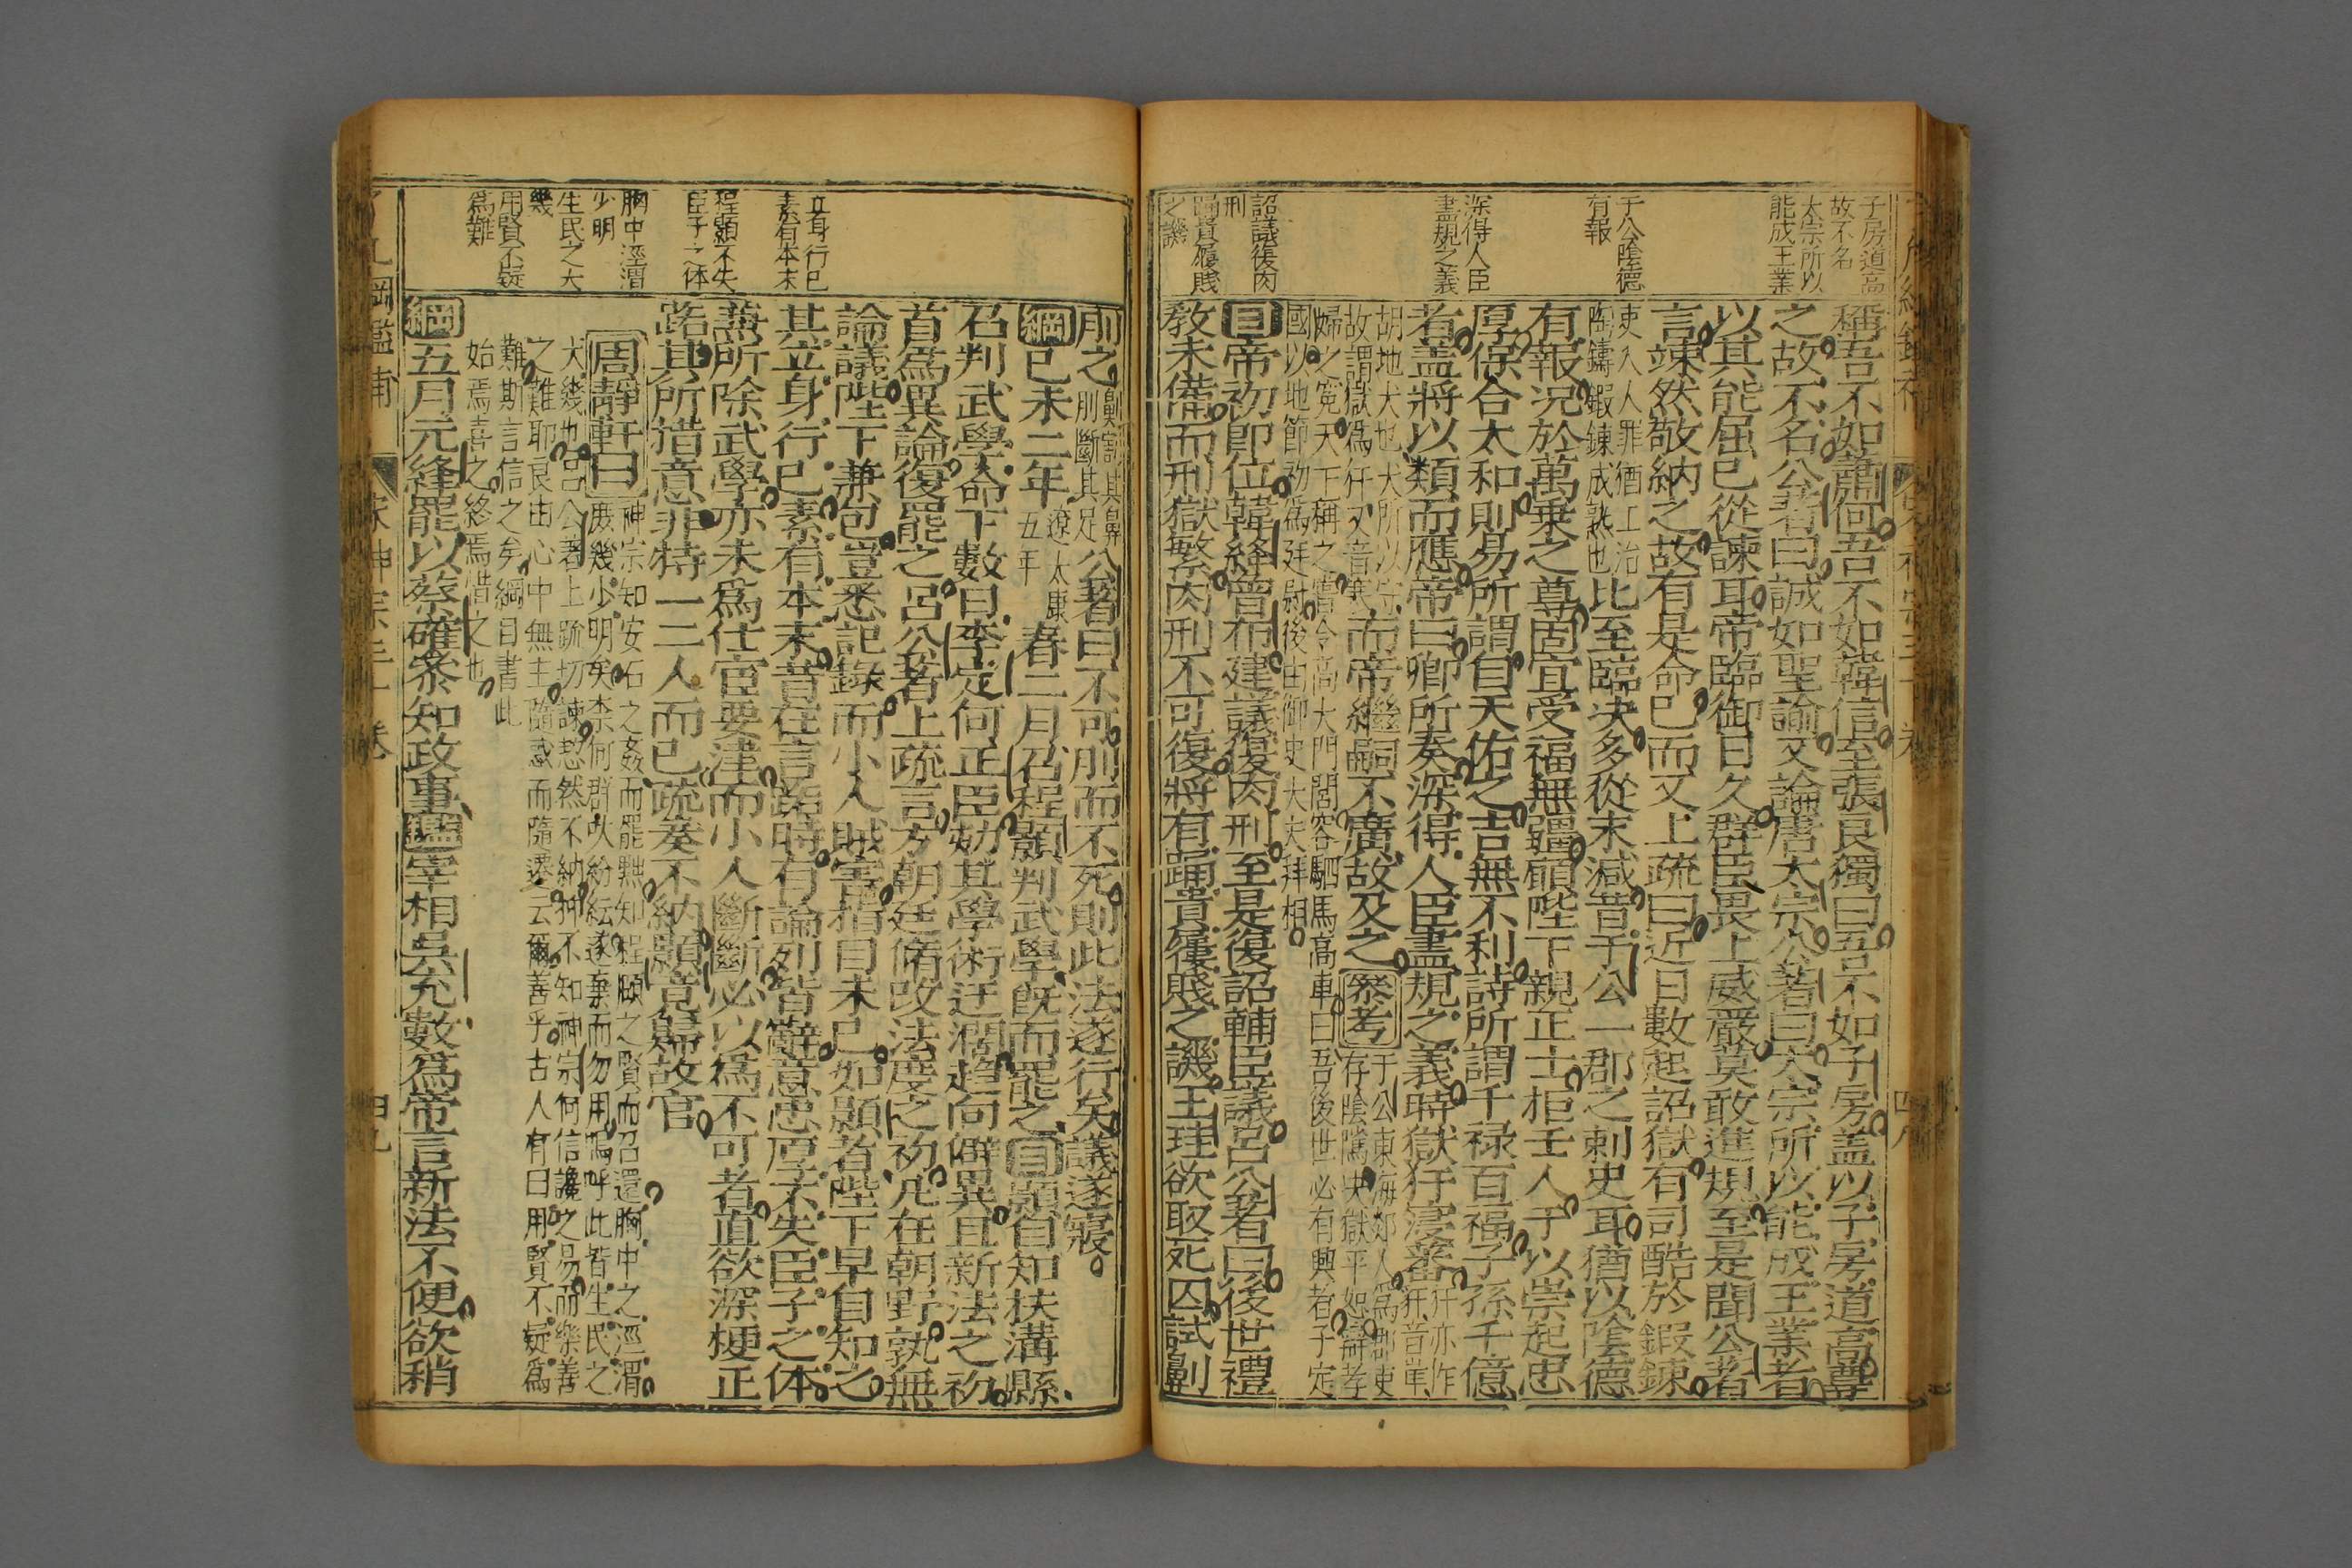 子房道高
故不名
太宗所以
能成王業
于公陰德
有報
深得人臣
盡規之義
詔議復肉
刑
踊貴屨賤
之譏
稱吾不如蕭何吾不如韓信至張良獨曰吾不如子房盖以子房道高尊
之故不名公著曰誠如聖諭又論唐太宗公著曰太宗所以能成王業者
以其能屈己從諫耳帝臨御日久群臣畏上威嚴莫敢進規至是聞公著
言竦然敬納之故有是命已而又上疏曰近日數起詔獄有司酷於鍜鍊
吏入人罪猶工治
陶鑄鍜鍊成熟也
比至臨决多從末減昔于公一郡之刺史耳猶以陰德
有報况於萬乗之尊固宜受福無疆願陛下親正士柜壬人于以崇起忠
厚候合太和則易所謂自天佑之吉無不利詩所謂千禄百福子孫千億
者盖將以類而應帝曰卿所奏深得人臣盡規之義時獄犴寖蕃
犴亦作
犴音岸
胡地犬也犬所以守
故謂獄為犴又音寒
而帝繼嗣不廣故及之
叅考
于公東海郯人為郡吏
存陰隲决獄平恕辭孝
婦之冤天下稱之嘗令高大門閭容駟馬高車曰吾後世必有興者子定
國以地節初為廷尉後由御史大夫拜相
目帝初即位韓絳曾布建議復肉刑至是復詔輔臣議呂公著曰後世禮
教未備而刑獄繁肉刑不可復將有踊貴屨賤之譏王珪欲取死囚試劓
立身行己
素有本末
程顥不失
臣子之体
胸中涇渭
少明
生民之大
幾
用賢不疑
為難
刖之
劓割其鼻
刖斷其足
公著曰不可刖而不死則此法遂行矣議遂寢
綱己未二年
遼太康
五年
春二月召程顥判武學既而罷之目顥自知扶溝縣
召判武學命下數日李定何正臣劾其學術迂濶趋向僻異且新法之初
首為異論復罷之呂公著上疏言方朝廷脩改法度之初凡在朝野孰無
論議陛下兼包豈悉記錄而小人賊害指目未已如顥者陛下早自知之
其立身行己素有本末昔在言路時有論列皆辭意忠厚不失臣子之体
兼所除武學亦未為仕宦要津而小人斷斷必以為不可者直欲深梗正
路其所措意非特一二人而已疏奏不納顥竟歸故官
周靜軒曰
神宗知安石之姦而罷黜知程顥之賢而召還胸中之涇渭
庶幾少明矣柰何群吠紛紜遂棄而勿用嗚呼此皆生民之
大幾也呂公著上疏切諫恝然不納抑不知神宗何信讒之易而樂善
之難耶良由心中無主隨感而隨遷云爾善乎古人有曰用賢不疑為
難斯言信之矣綱目書此
始焉喜之終焉惜之也
綱五月元絳罷以蔡確叅知政事鑑宰相吳充數為帝言新法不便欲稍